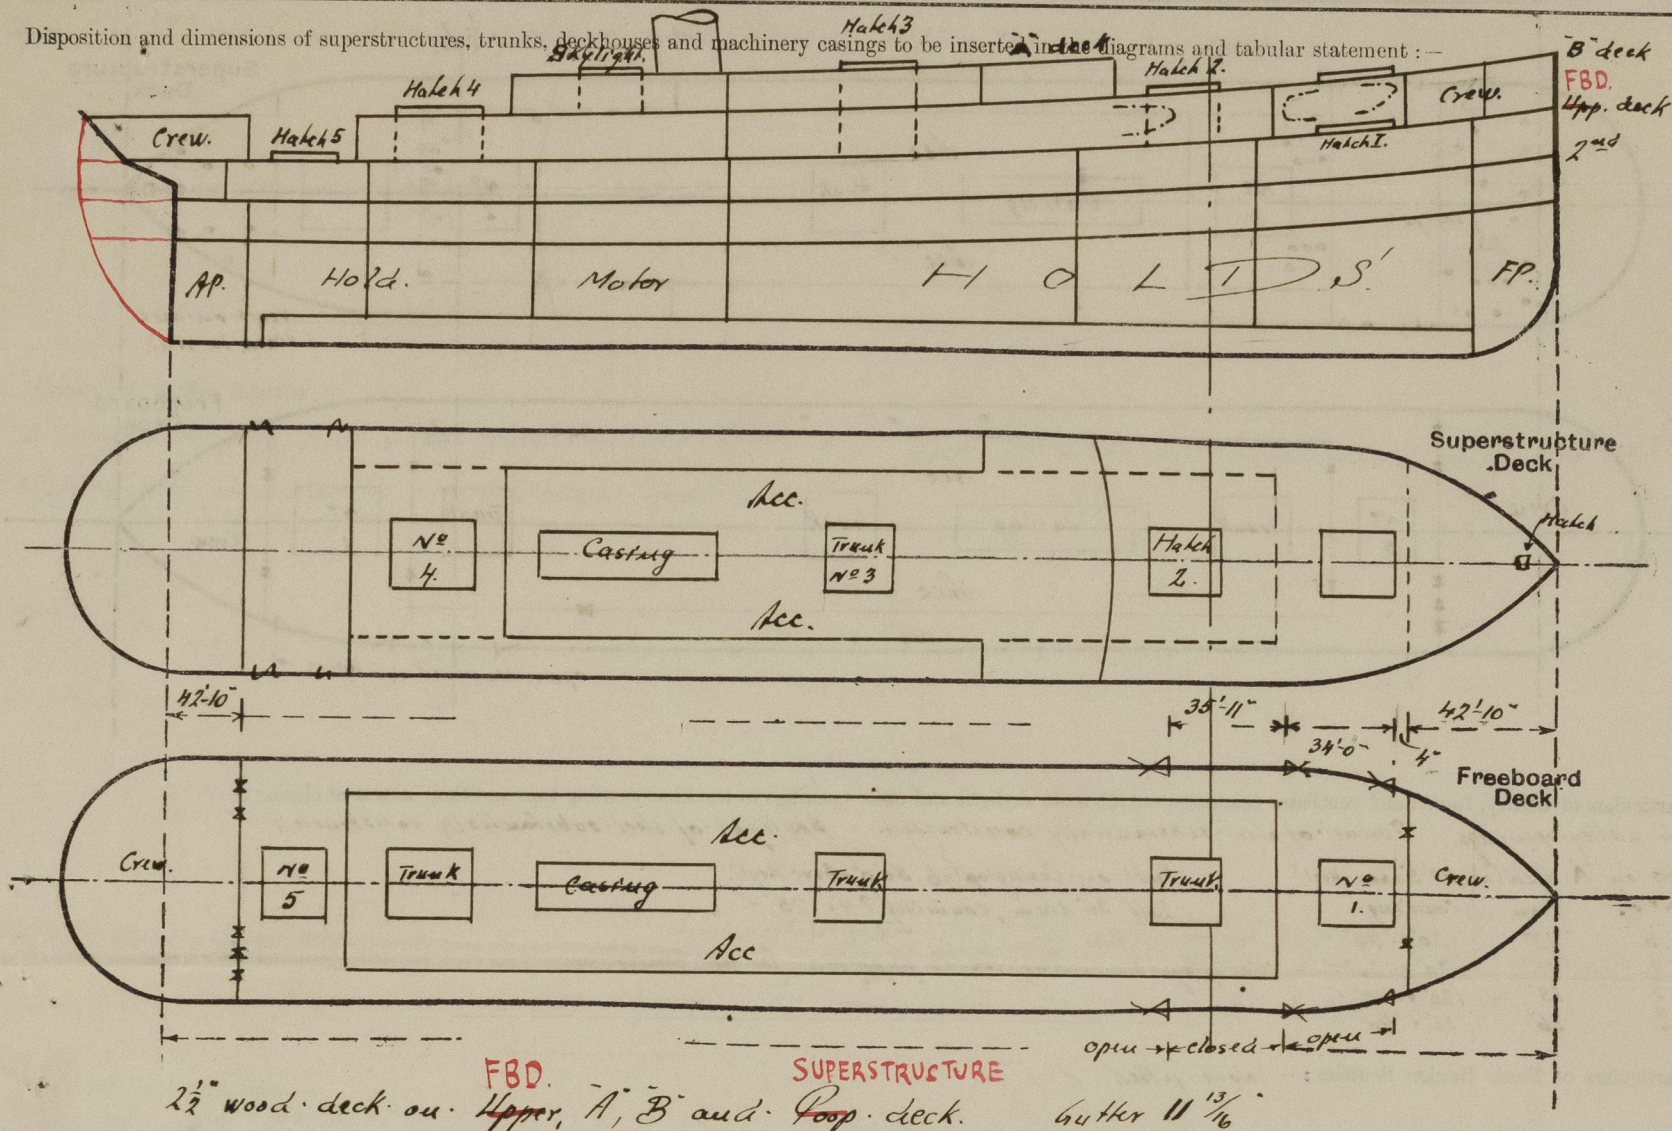 Disposition and dimensions of superstructures, trunks, deckhouses and machinery casings to be inserted in the diagrams and tabular statement :—
Hatch 3
"A" deck
"B" deck
Skylight.
Hatch 2.
FBD.
Hatch 4
Crew.
Upp. deck
Crew.
Hatch 5
Hatch I.
2nd
AP.
Hold.
Motor
HOLDS.
FP.
Superstructure
Deck
Acc.
Hatch
No
4.
Casing
Trunk
No 3
Hatch
2.
Acc.
42'-10"
35'-11"
42'-10"
34'-0"
4"
Freeboard
Deck
Acc.
Crew.
No
5
Trunk
Casing
Trunk
Trunk
No
1.
Crew.
Acc
open
closed
open
FBD.
SUPERSTRUCTURE
2½" wood deck on Upper, "A", "B" and Poop deck.
Gutter 11 13/16"